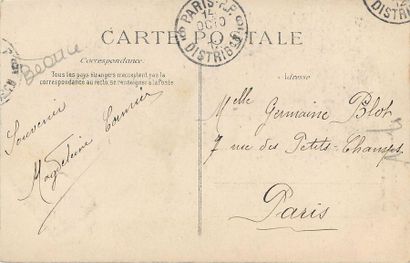 PARIS R.P.
DISTRIBON
CARTE POSTALE
Correspondance
Adresse
Tous les pays étrangers n'acceptent pas la
correspondance au recto, se renseigner à la Poste.
Souvenir
Magdeleine
Melle Germaine Blot
7 rue des Petits-Champs
Paris